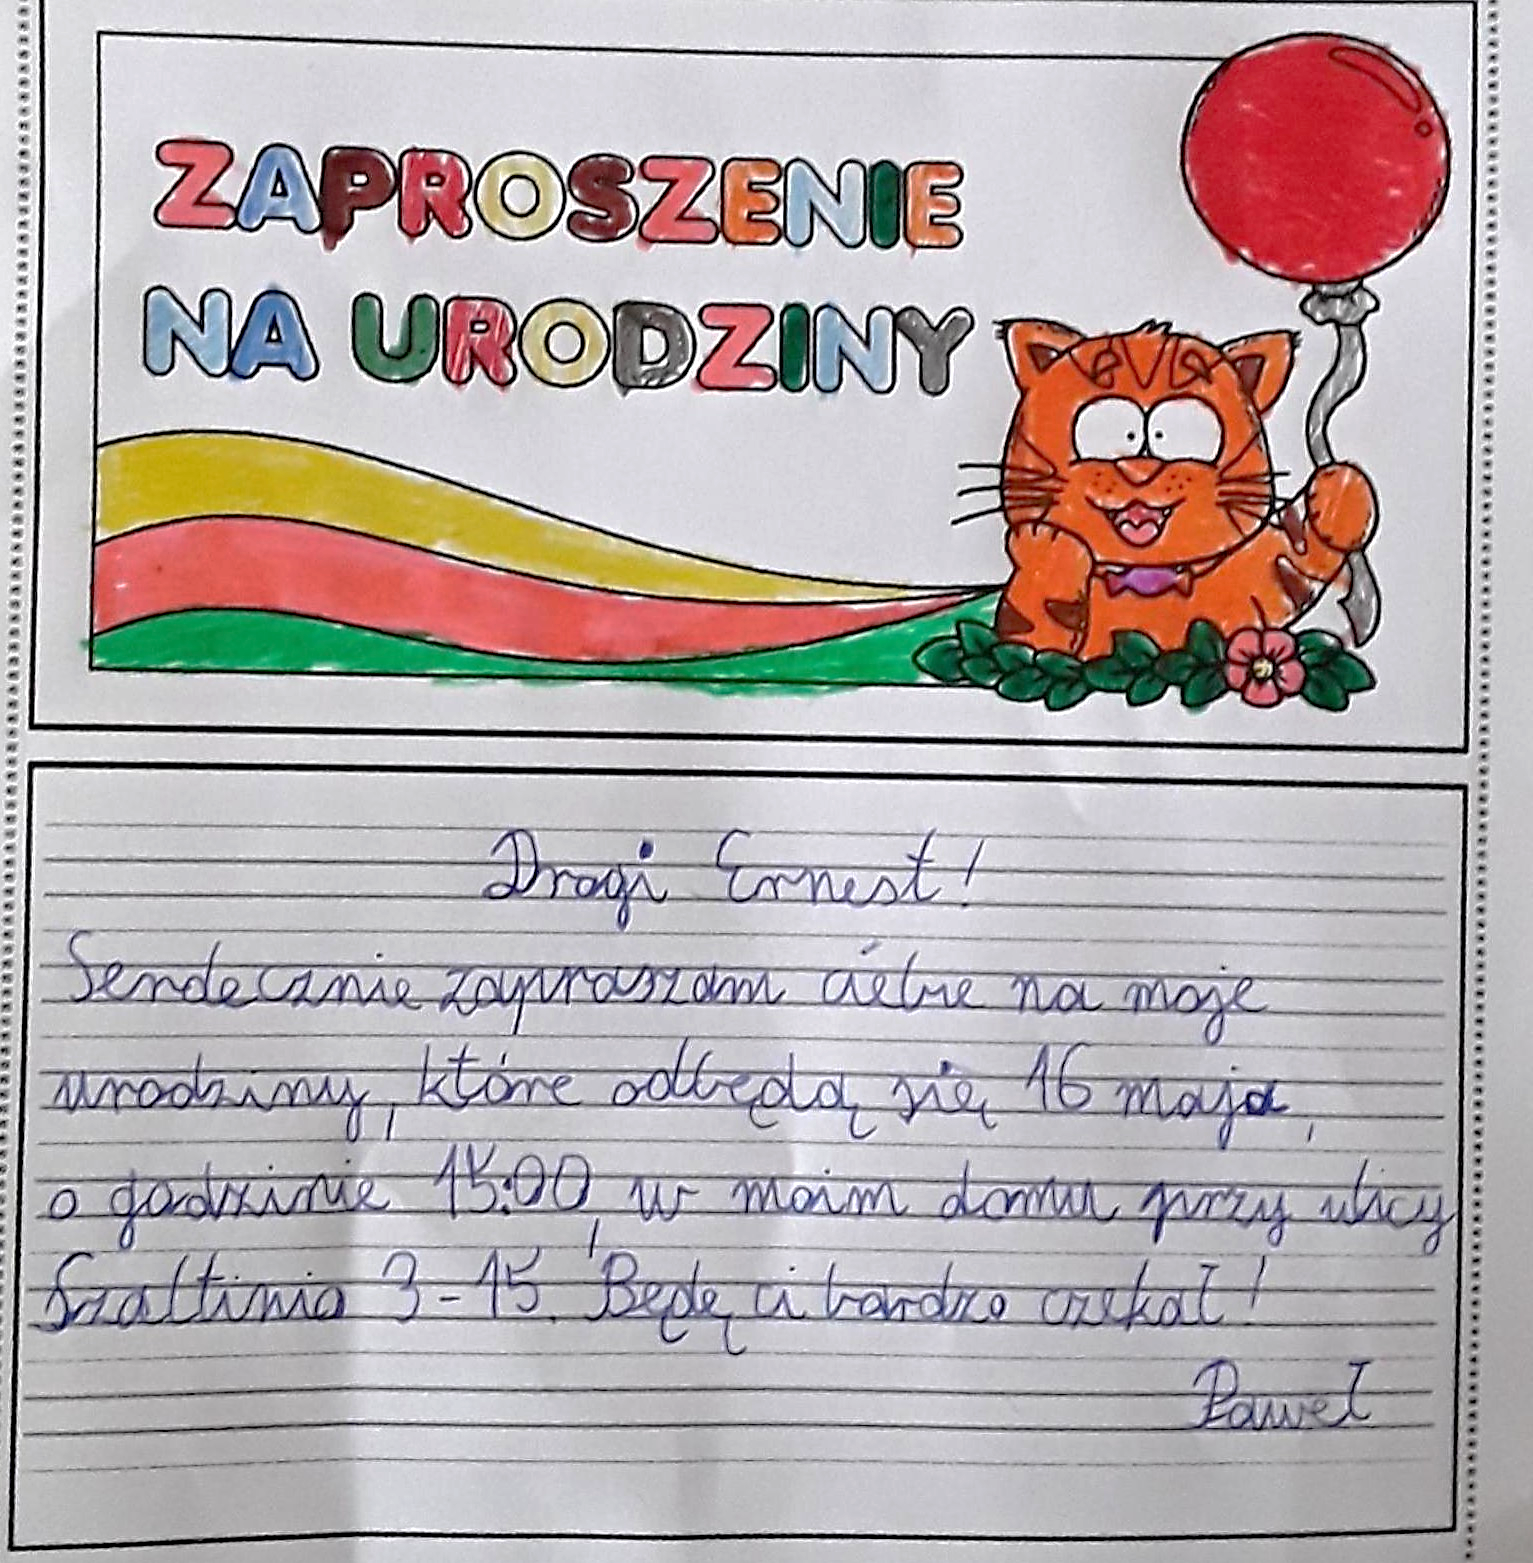 ZAPROSZENIE
NA URODZINY
Drogi Ernest!
Serdecznie zapraszam ciebie na moje
urodziny, które odbędą się 16 maja,
o godzinie 15:00, w moim domu przy ulicy
Szaltinio 3-15. Będę ci bardzo czekał!
Paweł